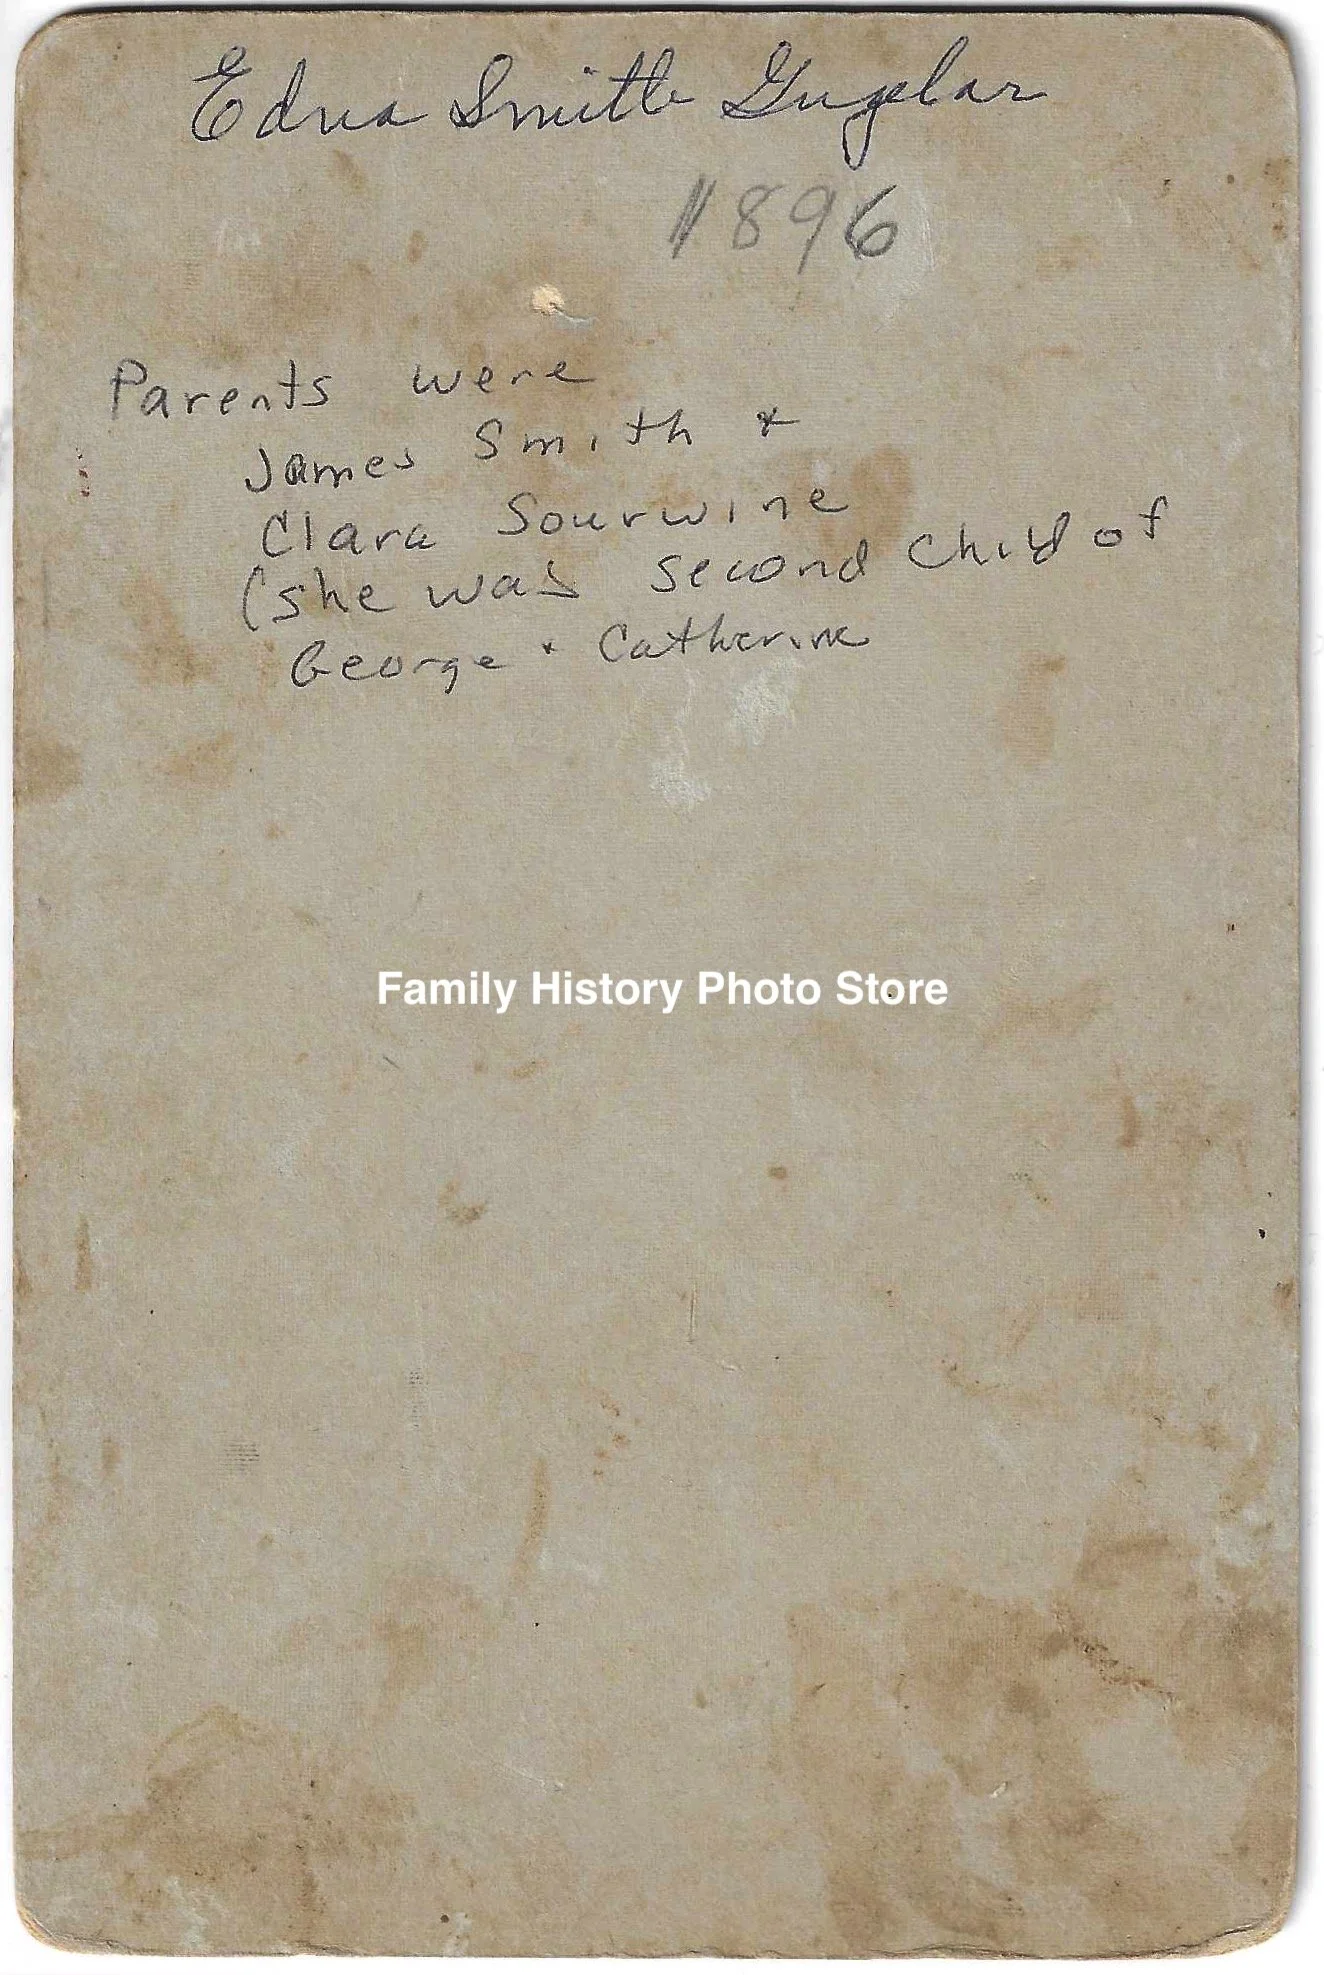 Edna Smith Guzelar
1896
Parents were
James Smith &
Clara Sourwine
(she was second child of
George & Catherine
Family History Photo Store